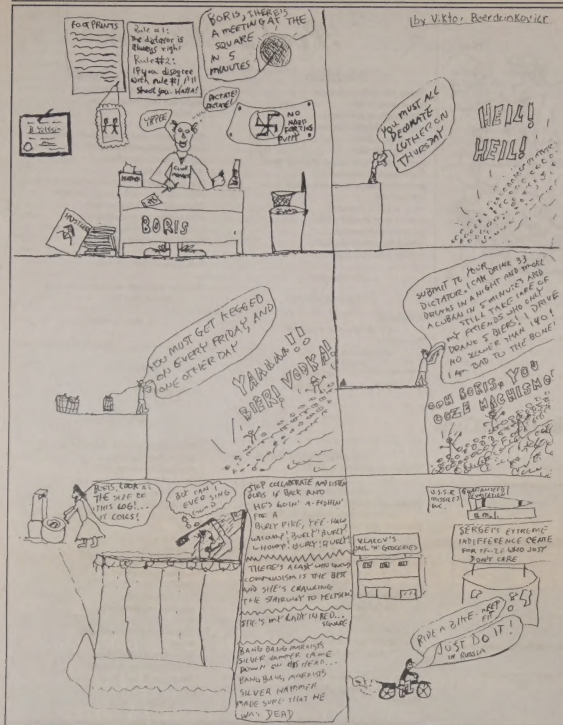 by Viktor
FOOTPRINTS
Rule #1:
The dictator is
always right
Rule #2:
If you disagree
with rule #1 I'll
shoot you. HaHa!
BORIS, THERE'S
A MEETING AT THE
SQUARE
IN 5
MINUTES
DICTATE!
DICTATE!
YIPPEE
NO
NEED
FOR THIS
BORIS
YOU MUST ALL
DECORATE
LUTHER ON
THURSDAY
HEIL!
HEIL!
YOU MUST GET KEGGED
ON EVERY FRIDAY, AND
ONE OTHER DAY
YAHHHH!!
BIER! VODKA!
SUBMIT TO YOUR
DICTATOR. I CAN DRINK 33
DRINKS IN A NIGHT AND SMOKE
A CUBAN IN 5 MINUTES AND
STILL TAKE CARE OF
MY FRIENDS WHO ONLY
DRANK 5 BIERS! I DRIVE
NO SLOWER THAN 140!
I AM BAD TO THE BONE!
OOH BORIS, YOU
OOZE MACHISMO!
BORIS, LOOK AT
THE SIZE OF
THIS LOG!...
IT COILS!
BOY CAN I
EVER SING
STOP COLLABORATE AND LISTEN
IS BACK AND
HE'S GOIN' A-FISHIN'
FOR A
BURLY PIKE, YEE-HAW
WHOOMP! BURLY! BURLY
WHOOMP! BURLY! BURLY!
THERE'S A LADY WHO KNOWS
COMMUNISM IS THE BEST
AND SHE'S CRAWLING
THE STAIRWAY TO YELTSIN
SHE'S MY LADY IN RED...
SQUARE
BANG BANG MARXISTS
SILVER HAMMER CAME
DOWN ON HIS HEAD...
BANG BANG, MARXISTS
SILVER HAMMER
MADE SURE THAT HE
WAS DEAD
VLADOV'S
'N' GROCERIES
U.S.S.R
MISSILES
INC.
GUARANTEED
SERGEI'S EXTREME
INDIFFERENCE CENTRE
FOR THOSE WHO JUST
DON'T CARE
RIDE A BIKE. KEEP
FIT
JUST DO IT!
IN RUSSIA